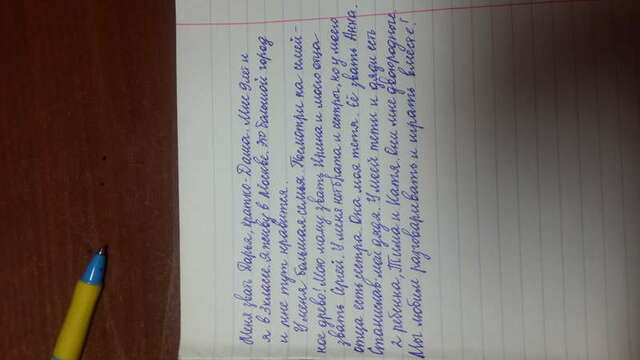 Меня звать Дарья, кратко-Даша. Мне 9 лет и
я в 3 классе. Я живу в Москве. Это большой город
и мне тут нравится.
У меня большая семья. Посмотри на семей-
ное древо! Мою маму звать Ирина и моего отца
звать Сергей. У меня нет брата и сестры, но у моего
отца есть сестра. Она моя тетя. Её звать Анна.
Станислав-мой дядя. У моей тети и дяди есть
2 ребенка, Тима и Катя. Они мне двоюродные.
Мы любим разговаривать и играть вместе!